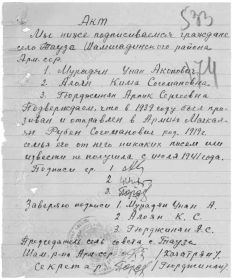 Акт
Мы ниже подписавшиеся граждане
село Тауза Шамшадинского района
Арм. сср.
1. Мурадян Унан Акопович
2. Алоян Кима Согомоновис
3. Гюрджинян Арпик Сергеевна
Подверждаем, что в 1939 году был при-
зиван и отправлен в Армию
Рубен Согомонович род. 1919г.
семья его от него никаких писем или
извести не получила с июля 1941 года.
Подписи гр. 1.
2.
3.
Заверяю подписи 1. Мурадян Унан А.
2. Алоян К. С.
3. Гюрджинян А.С.
Председатель сель совета с. Тауза
Шам р-на Арм сср
Секретарь (Гюрджинян)